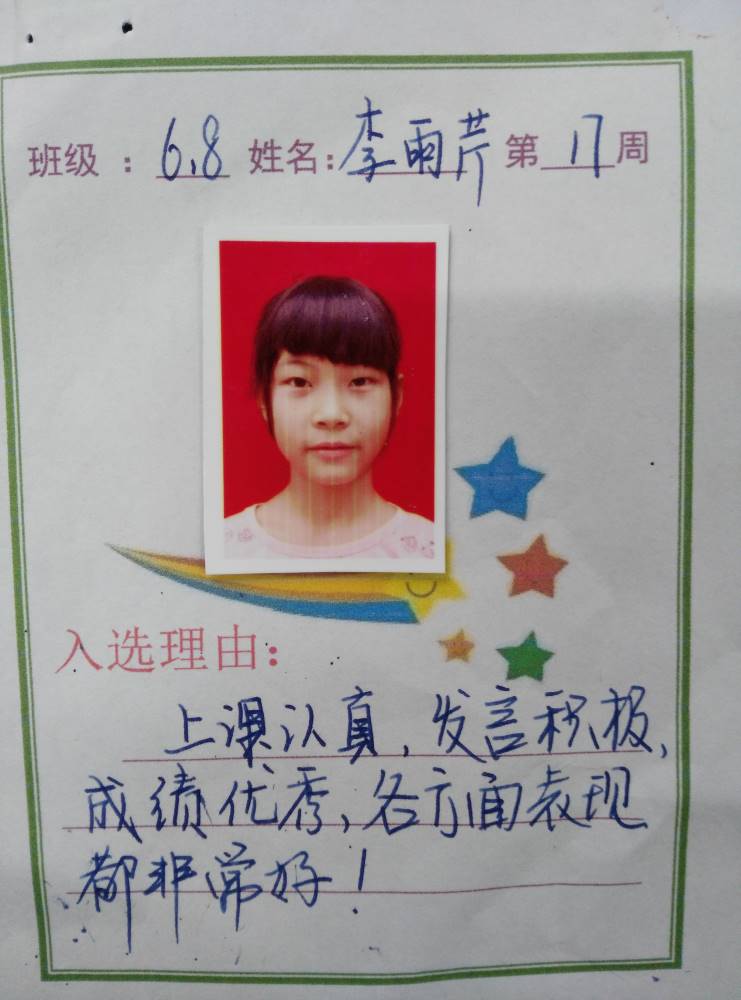 班级：6.8 姓名：李雨芹 第17周
入选理由：
上课认真，发言积极，
成绩优秀，各方面表现
都非常好！